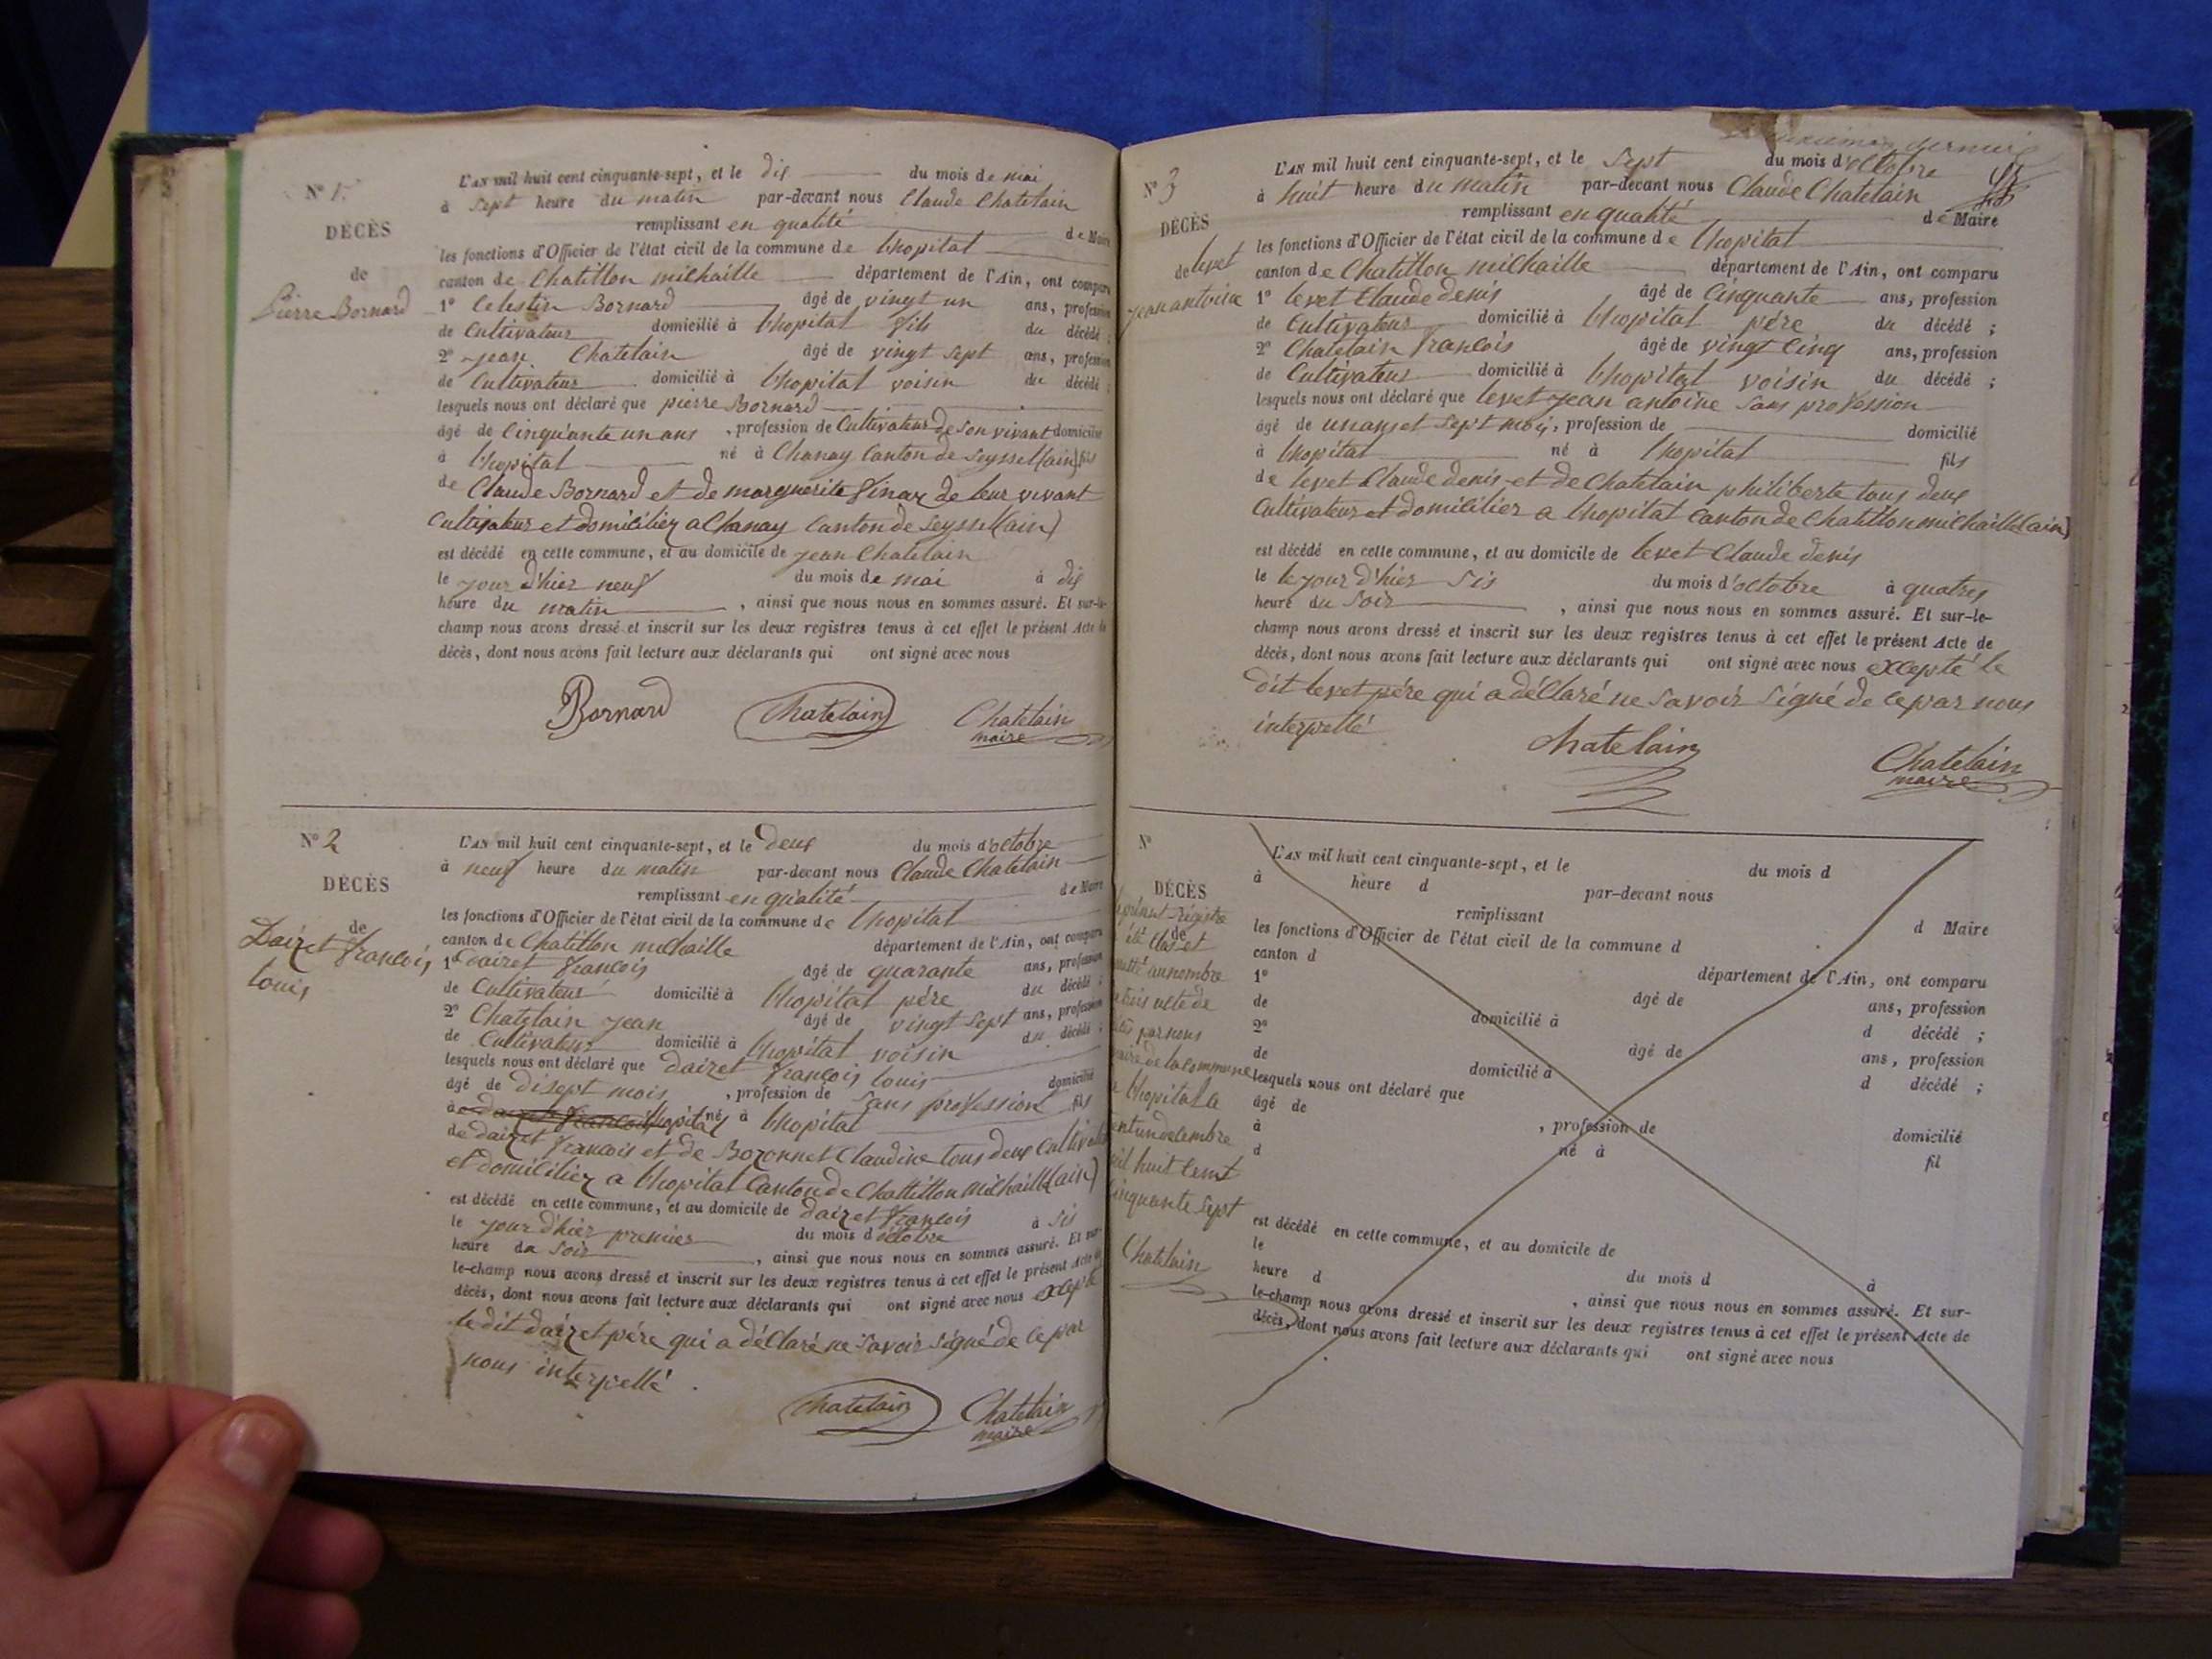 N° 1.
DÉCÈS
de
Pierre Bornard
L'AN mil huit cent cinquante-sept, et le dix du mois de mai
à Sept heure du matin par-devant nous Claude Chatelain
remplissant en qualité de Maire
les fonctions d'Officier de l'état civil de la commune de lhopital
canton de Chatillon michaille département de l'Ain, ont comparu
1° Celestin Bornard âgé de vingt un ans, profession
de Cultivateur domicilié à lhopital fils du décédé ;
2° jean Chatelain âgé de vingt Sept ans, profession
de Cultivateur domicilié à lhopital voisin du décédé ;
lesquels nous ont déclaré que pierre Bornard
âgé de Cinquante un ans , profession de Cultivateur de Son vivant domicilié
à lhopital né à Chanay Canton de Seyssel (ain) fils
de Claude Bornard et de marguerite Vinay de leur vivant
Cultivateur et domiciliez a Chanay Canton de Seyssel (ain)
est décédé en cette commune, et au domicile de jean Chatelain
le jour d'hier neuf du mois de mai à dix
heure du matin , ainsi que nous nous en sommes assuré. Et sur-le-
champ nous avons dressé et inscrit sur les deux registres tenus à cet effet le présent Acte de
décès, dont nous avons fait lecture aux déclarants qui ont signé avec nous
Bornard Chatelain Chatelain
maire
N° 2
DÉCÈS
de
Dairet francois
louis
L'AN mil huit cent cinquante-sept, et le deux du mois d'octobre
à neuf heure du matin par-devant nous Claude Chatelain
remplissant en qualité de Maire
les fonctions d'Officier de l'état civil de la commune de lhopital
canton de Chatillon michaille département de l'Ain, ont comparu
1° dairet francois âgé de quarante ans, profession
de Cultivateur domicilié à lhopital pére du décédé ;
2° Chatelain jean âgé de vingt Sept ans, profession
de Cultivateur domicilié à lhopital voisin du décédé ;
lesquels nous ont déclaré que dairet francois louis
âgé de disept mois , profession de Sans profession domicilié
à lhopital né à lhopital fils
de dairet francois et de Bozonnet Claudine tous deux Cultivateur
et domiciliez a lhopital Canton de Chattillon michaille (ain)
est décédé en cette commune, et au domicile de dairet francois
le jour d'hier premier du mois d'octobre à Six
heure du Soir , ainsi que nous nous en sommes assuré. Et sur-
le-champ nous avons dressé et inscrit sur les deux registres tenus à cet effet le présent Acte de
décès, dont nous avons fait lecture aux déclarants qui ont signé avec nous excepté
le dit dairet pére qui a déClaré ne Savoir Signé de ce par
nous interpellé
Chatelain Chatelain
maire
N° 3
DÉCÈS
de levet
jean antoine
dernier
L'AN mil huit cent cinquante-sept, et le Sept du mois d'octobre
à huit heure du matin par-devant nous Claude Chatelain
remplissant en qualité de Maire
les fonctions d'Officier de l'état civil de la commune de lhopital
canton de Chatillon michaille département de l'Ain, ont comparu
1° levet Claude denis âgé de Cinquante ans, profession
de Cultivateur domicilié à lhopital pére du décédé ;
2° Chatelain francois âgé de vingt Cinq ans, profession
de Cultivateur domicilié à lhopital voisin du décédé ;
lesquels nous ont déclaré que levet jean antoine Sans profession
âgé de un ans et Sept mois, profession de domicilié
à lhopital né à lhopital fils
de levet Claude denis et de Chatelain philiberte tous deux
Cultivateur et domicilier a lhopital Canton de Chatillon michaille (ain)
est décédé en cette commune, et au domicile de levet Claude denis
le le jour d'hier Six du mois d'octobre à quatres
heure du Soir , ainsi que nous nous en sommes assuré. Et sur-le-
champ nous avons dressé et inscrit sur les deux registres tenus à cet effet le présent Acte de
décès, dont nous avons fait lecture aux déclarants qui ont signé avec nous excepté le
dit levet pére qui a déClaré ne Savoir Signé de ce par nous
interpellé
Chatelain Chatelain
maire
N°
DÉCÈS
de
présent registre
été Clos et
au nombre
acte de
par nous
maire de la commune
lhopital a
décembre
mil huit Cent
cinquante Sept
Chatelain
L'AN mil huit cent cinquante-sept, et le du mois d
à heure d par-devant nous
remplissant d Maire
les fonctions d'Officier de l'état civil de la commune d
canton d département de l'Ain, ont comparu
1° âgé de ans, profession
de domicilié à d décédé ;
2° âgé de ans, profession
de domicilié à d décédé ;
lesquels nous ont déclaré que
âgé de , profession de domicilié
à né à fil
d
est décédé en cette commune, et au domicile de
le du mois d à
heure d , ainsi que nous nous en sommes assuré. Et sur-
le-champ nous avons dressé et inscrit sur les deux registres tenus à cet effet le présent Acte de
décès, dont nous avons fait lecture aux déclarants qui ont signé avec nous